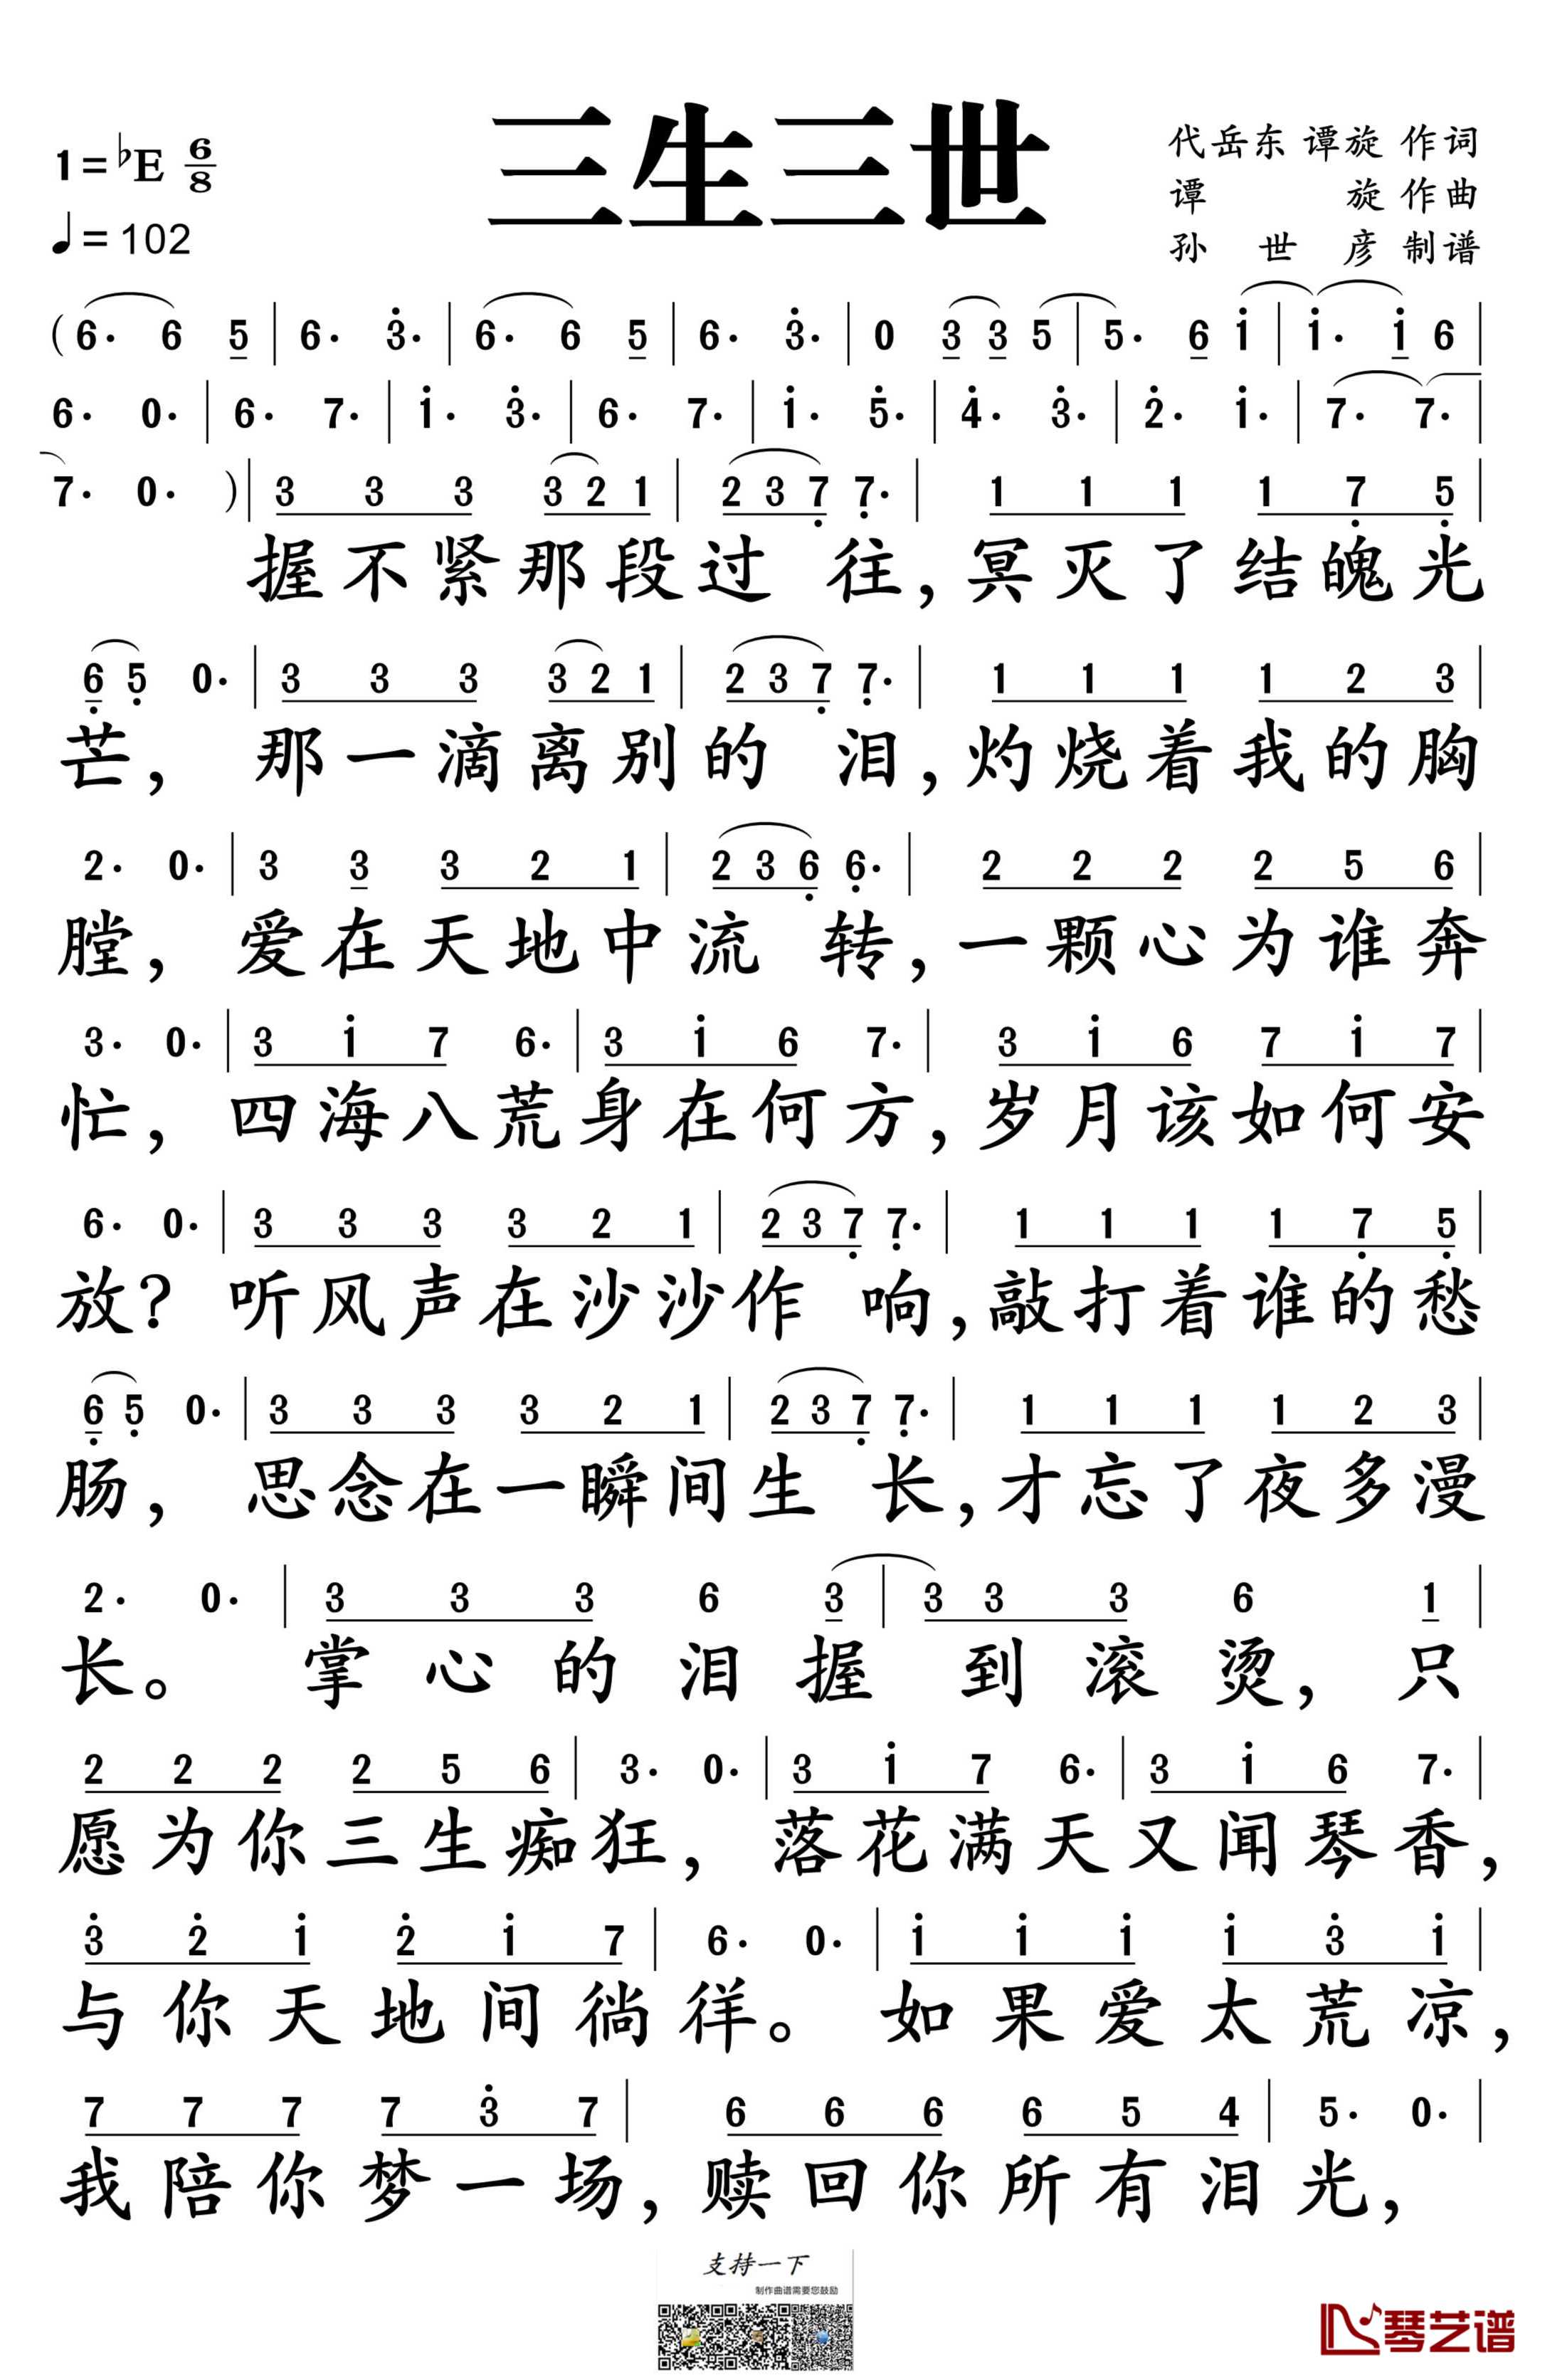 三生三世
1=♭E 6/8
♩= 102
代岳东 谭旋 作词
谭 旋 作曲
孙 世 彦 制谱
( 6· 6 5 | 6· 3̇· | 6· 6 5 | 6· 3̇· | 0 3 3 5 | 5· 6 1̇ | 1̇· 1̇ 6 |
6· 0· | 6· 7· | 1̇· 3̇· | 6· 7· | 1̇· 5̇· | 4̇· 3̇· | 2̇· 1̇· | 7· 7· |
7· 0· ) | 3 3 3 3 2 1 | 2 3 7̣ 7̣· | 1 1 1 1 7̣ 5̣ |
握不紧那段过 往，冥灭了结魄光
6̣ 5̣ 0· | 3 3 3 3 2 1 | 2 3 7̣ 7̣· | 1 1 1 1 2 3 |
芒， 那一滴离别的 泪，灼烧着我的胸
2· 0· | 3 3 3 2 1 | 2 3 6̣ 6̣· | 2 2 2 2 5 6 |
膛， 爱在天地中流 转，一颗心为谁奔
3· 0· | 3 1̇ 7 6· | 3 1̇ 6 7· | 3 1̇ 6 7 1̇ 7 |
忙， 四海八荒身在何方，岁月该如何安
6· 0· | 3 3 3 3 2 1 | 2 3 7̣ 7̣· | 1 1 1 1 7̣ 5̣ |
放？ 听风声在沙沙作 响，敲打着谁的愁
6̣ 5̣ 0· | 3 3 3 3 2 1 | 2 3 7̣ 7̣· | 1 1 1 1 2 3 |
肠， 思念在一瞬间生 长，才忘了夜多漫
2· 0· | 3 3 3 6 3 | 3 3 3 6 1 |
长。 掌心的泪握 到滚烫，只
2 2 2 2 5 6 | 3· 0· | 3 1̇ 7 6· | 3 1̇ 6 7· |
愿为你三生痴狂， 落花满天又闻琴香，
3̇ 2̇ 1̇ 2̇ 1̇ 7 | 6· 0· | 1̇ 1̇ 1̇ 1̇ 3̇ 1̇ |
与你天地间徜徉。 如果爱太荒凉，
7 7 7 7 3̇ 7 | 6 6 6 6 5 4 | 5· 0· |
我陪你梦一场，赎回你所有泪光，
支持一下
制作曲谱需要您鼓励
琴艺谱